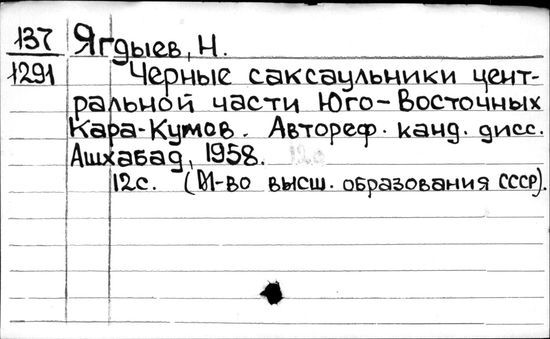 137 Ягдыев, Н.
1291 Черные саксаульники цент-
ральной части Юго-Восточных
Кара-Кумов. Автореф. канд. дисс.
Ашхабад, 1958.
12с. (М-во высш. образования СССР).